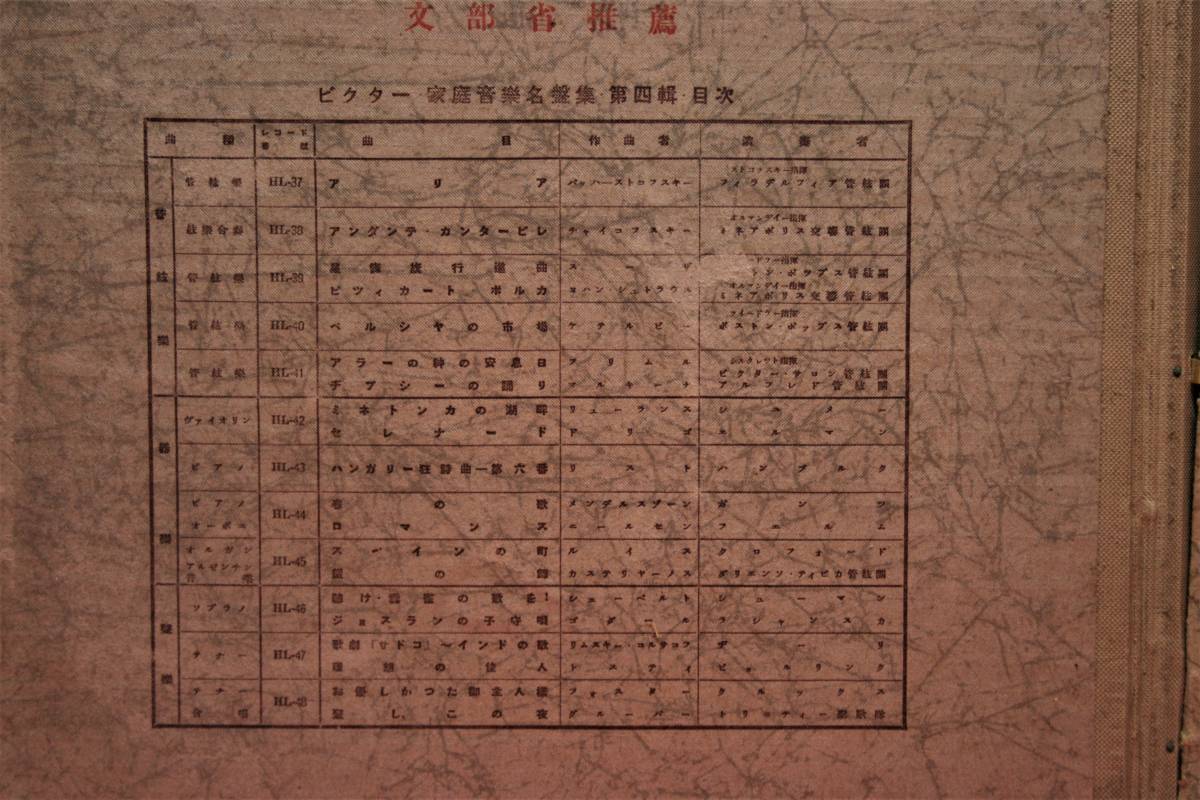 文部省推薦
ビクター 家庭音樂名盤集 第四輯 目次
曲種 レコード番號 曲目 作曲者 演奏者
管絃樂
管絃樂 HL-37 アリア バッハ―ストコフスキー ストコフスキー指揮 フィラデルフィア管絃團
絃樂合奏 HL-38 アンダンテ・カンタービレ チャイコフスキー オルマンデイー指揮 ミネアポリス交響管絃團
管絃樂 HL-39 行進曲 スーザ トン・ポップス管絃團
ピツィカート ポルカ ヨハン・シュトラウス オルマンデイー指揮 ミネアポリス交響管絃團
管絃樂 HL-40 ペルシヤの市場 ケテルビー フイードラー指揮 ボストン・ポップス管絃團
管絃樂 HL-41 アラーの神の安息日 フリムル シルクレット指揮 ビクター・サロン管絃團
チアシーの踊り アルフレド管絃團
器樂
ヴァイオリン HL-42 ミネトンカの湖畔 リューランス シュメー
セレナード ドリゴ エルマン
ピアノ HL-43 ハンガリー狂詩曲―第六番 リスト ハンブルク
ピアノ HL-44 春の歌 メンデルスゾーン ガンツ
オーボエ ロマンス ニールセン
オルガン HL-45 スペインの町 ルイス クロフォード
アルゼンチン音樂 カステリヤーノス ダリエンソ・ティピカ管絃團
聲樂
ソプラノ HL-46 聽け・雲雀の歌を! シューベルト シューマン
ジョスランの子守唄 ゴダール ラシャンスカ
テナー HL-47 歌劇「サドコ」～インドの歌 リムスキー・コルサコフ ヂーリ
の人 トスティ ビョルリンク
テナー HL-48 お優しかつた御主人樣 フォスター クルックス
合唱 聖しこの夜 グルーバー トリニティー聖歌隊